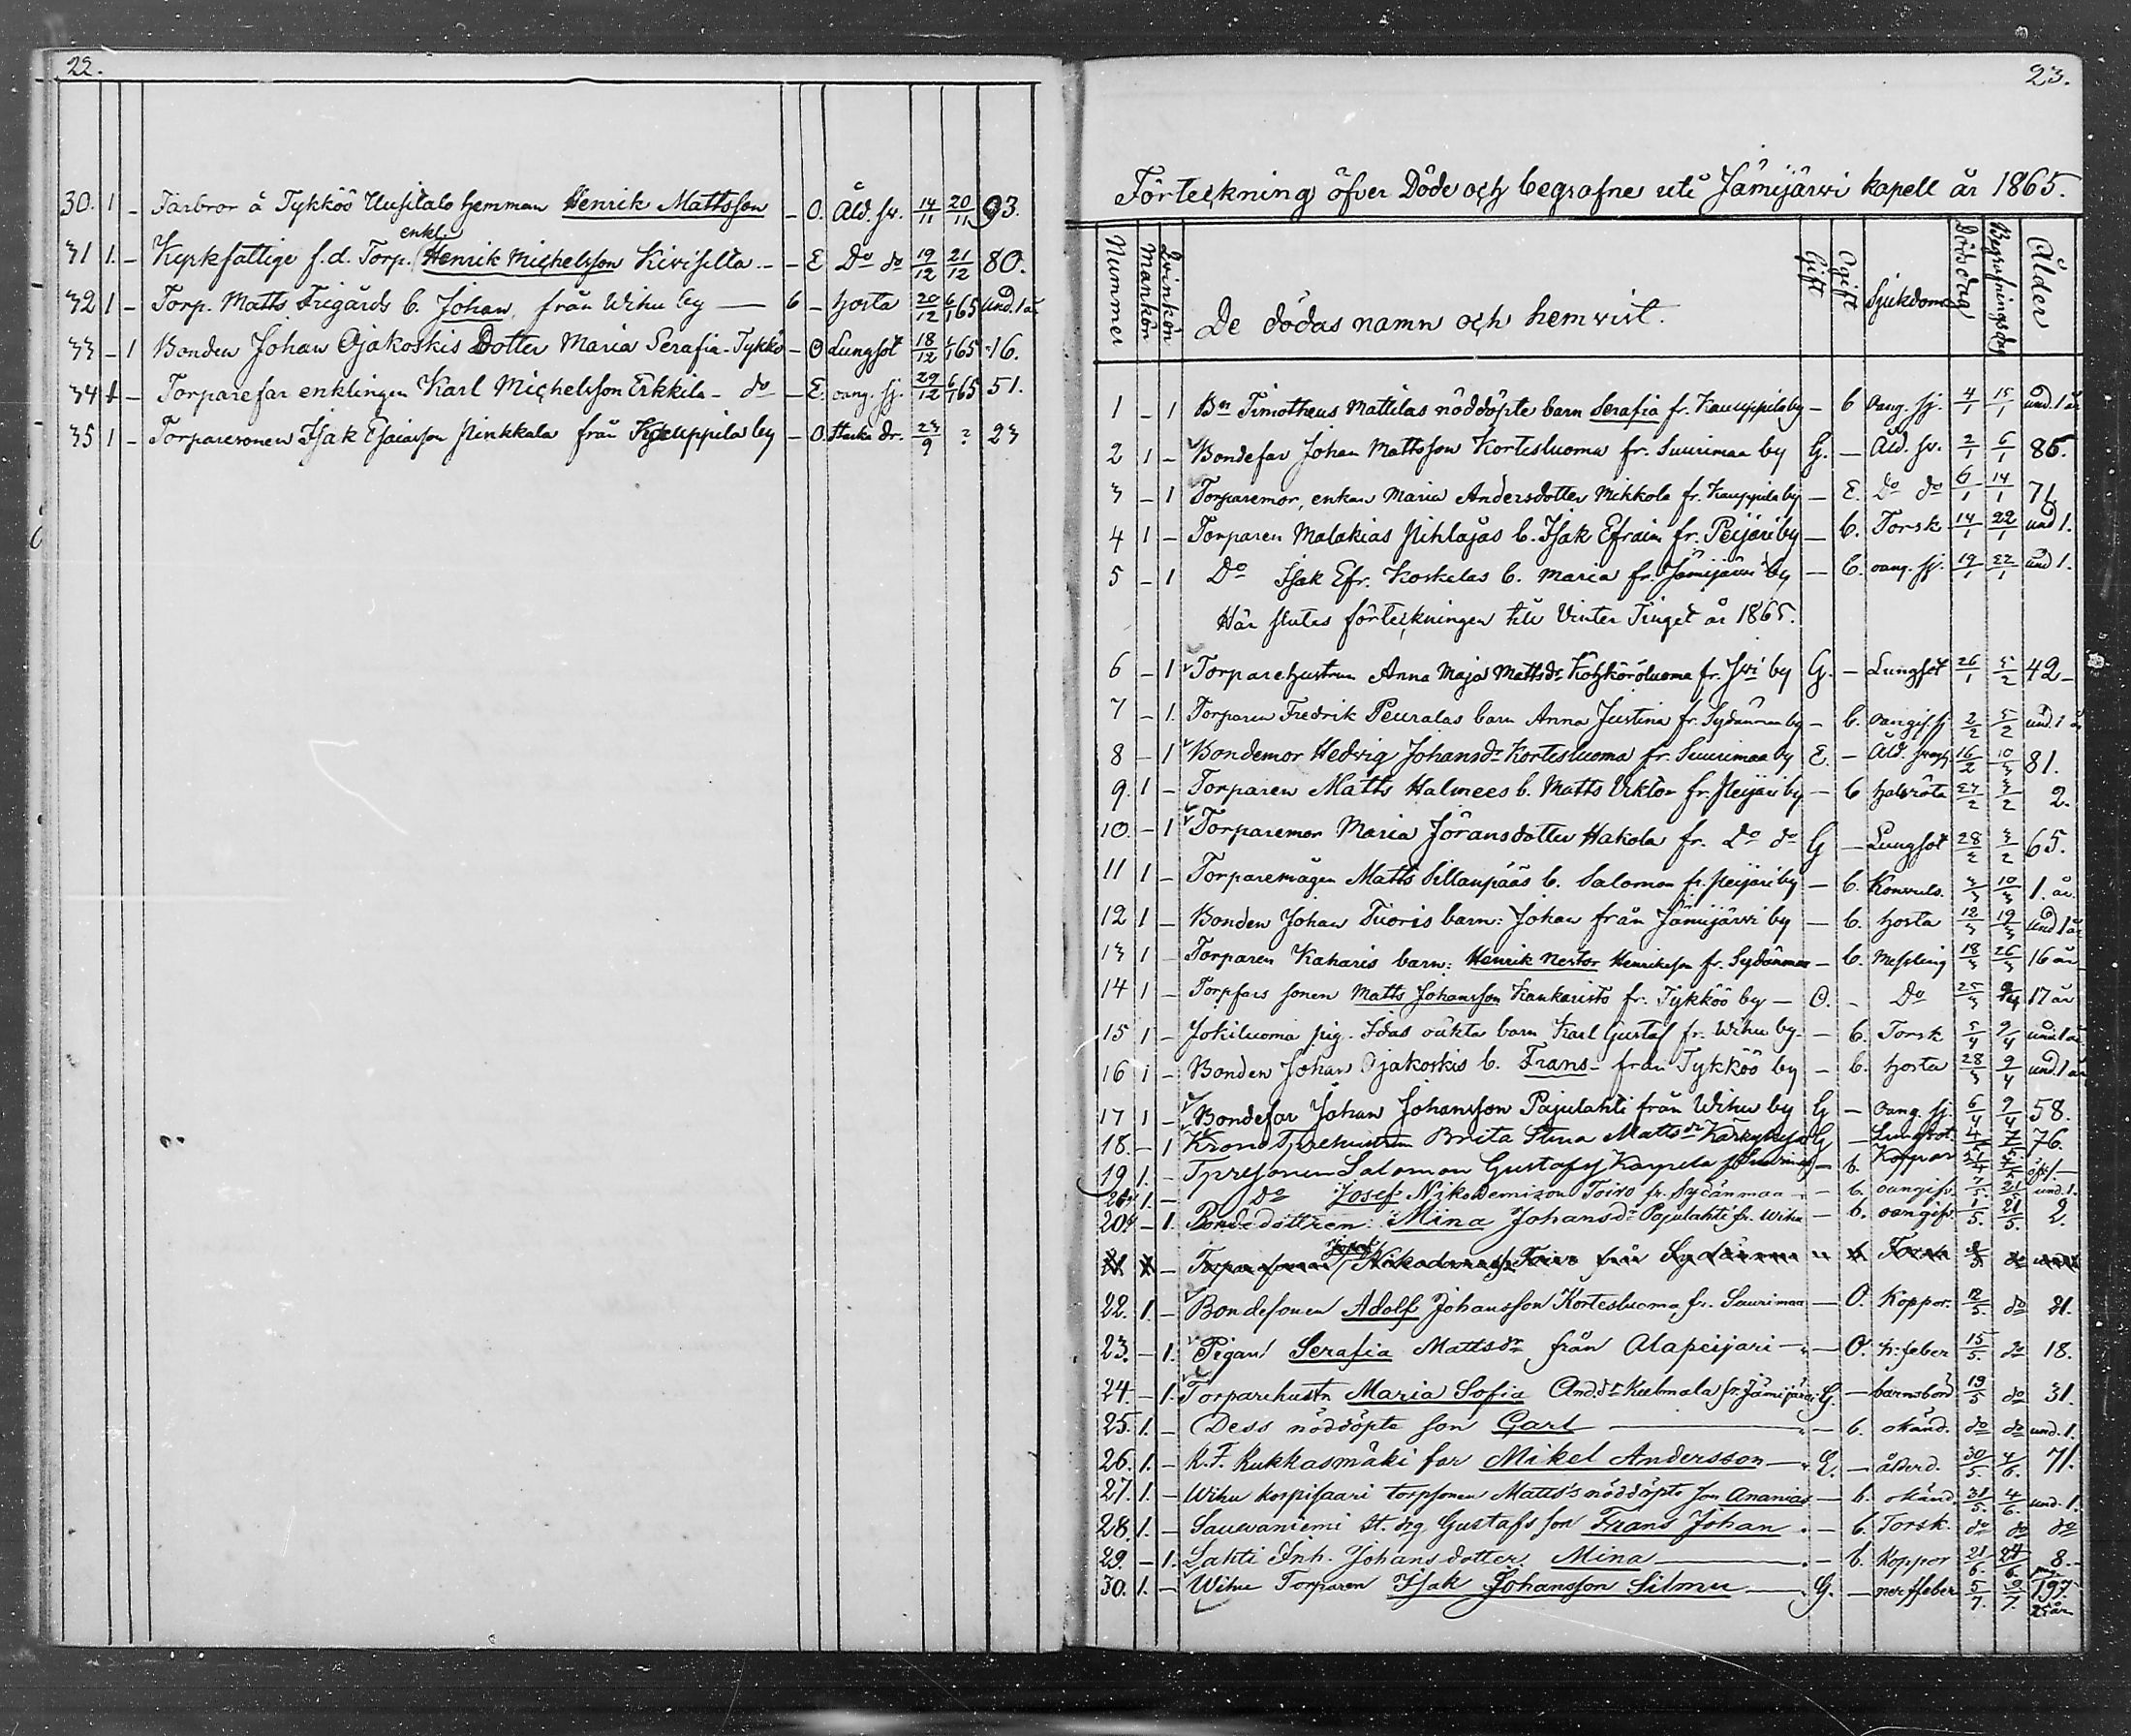 22.
30. 1 - Farbror å Tykköö Uusitalo hemman Henrik Mattsson - O. Åld. sv. 14/11 20/11 93.
enkl.
31 1. - Kyrkfattige f.d. Torp. Henrik Michelsson Kivisilta - - E Do do 19/12 21/12 80.
32 1 - Torp. Matts Frigårds b. Johan, från Wihu by — b - hosta 20/12 6/1 65 und. 1 år
33 - 1 Bonden Johan Ojakoskis Dotter Maria Serafia - Tykkö - O Lungsot 18/12 6/1 65 16.
34 1 - Torparefar enklingen Karl Michelsson Erkkila - do - E. oang. sj. 29/12 6/1 65 51.
35 1 - Torparesonen Isak Esaiasson Pinkkala från Kauppila by - O. Starka dr. 23/9 ? 23
23.
Förteckning öfver Döde och begrafne uti Jämijärwi kapell år 1865.
Nummer Mankön Qvinkön De dödas namn och hemvist. Gift Ogift Sjukdom Dödsdag Begrafningsdag Ålder
1 - 1 Bn Timotheus Mattilas nöddöpte barn Serafia fr. Kauppila by - b Oang. sj. 4/1 15/1 und. 1 år
2 1 - Bondefar Johan Mattsson Kortesluoma fr. Suurimaa by G. - Åld. sv. 2/1 6/1 86.
3 - 1 Torparemor, enkan Maria Andersdotter Mikkola fr. Kauppila by - E. Do do 6/1 14/1 71
4 1 - Torparen Malakias Pihlajas b. Isak Efraim fr. Peijari by - b. Torsk 14/1 22/1 und 1.
5 - 1 Do Isak Efr. Koskelas b. Maria fr. Jämijärwi by - b. oang. sj. 19/1 22/1 und 1.
Här slutas förteckningen till Vinter Tinget år 1865.
6 - 1 Torparehustrun Anna Maja Mattsdr fr. by G. - Lungsot 26/1 5/2 42 -
7 - 1. Torparen Fredrik Peuralas barn Anna Justina fr. Sydänmaa by - b. oangif. sj 2/2 5/2 und. 1 år
8 - 1 Bondemor Hedvig Johansdr Kortesluoma fr. Suurimaa by E. - Åld. 16/2 10/3 81.
9. 1 - Torparen Matts Halmees b. Matts Viktor fr. Peijari by - b halsröta 27/2 3/2 2.
10. - 1 Torparemor Maria Jöransdotter Hakola fr. Do do G - Lungsot 28/2 3/2 65.
11 1 - Torparemågen Matts Sillanpääs b. Salomon fr. Peijari by - b. Konvuls. 3/3 10/3 1. år.
12 1 - Bonden Johan Tuoris barn: Johan från Jämijärwi by - b. hosta 12/3 19/3 und 1 år
13 1 - Torparen Kaharis barn: Henrik Nestor Henriksson fr. Sydänmaa - b. Messling 18/3 26/3 16 år
14 1 - Torpfars sonen Matts Johansson Kankaristo fr. Tykköö by - O. - Do 25/3 9/4 17 år
15 1 - Jokiluoma pig. Idas oäkta barn Karl Gustaf fr. Wihu by - - b. Torsk 5/4 9/4 und 1 år.
16 1 - Bonden Johan Ojakoskis b. Frans - från Tykköö by - b. hosta 28/3 9/4 und. 1 år
17 1 - Bondefar Johan Johansson Pajulahti från Wihu by G - Oang. sj. 6/4 9/4 58.
18. - 1 Krono Tprehustrun Brita Stina Mattsdr G - Lungsot. 76.
19 1. - Tpresonen Salomon Gustafss Karpela fr. Suurimaa - b. Koppor
1. - do Josef Nikodemison Toivo fr. Sydänmaa - - b. oangifv. 7/5 21/5 und. 1.
20 - 1. Bondedottren: Mina Johansdr Pajulahti fr. Wihu - b. oangifv. 1/5. 21/5. 2.
22. 1. - Bondesonen Adolf Johansson Kortesluoma fr. Suurimaa - O. Koppor. 12/5. do 21.
23. - 1. Pigan! Serafia Mattsdr från Alapeijari - - O. n: feber 15/5. do 18.
24. - 1. Torparehustr Maria Sofia And.dr Kulmala fr. Jämijärwi G. - barnsbörd 19/5 do 31.
25. 1. - Dess nöddöpte son Carl — - b. okänd. do do und. 1.
26. 1. - K.F. Kukkasmäki far Mikel Andersson - E. - ålderd. 30/5. 4/6. 71.
27. 1. - Wihu Korpisaari torpsonen Matts's nöddöpte son Ananias - b. okänd 31/5. 4/6. und. 1.
28. 1. - Sauvaniemi st. drg Gustafs son Frans Johan - b. Torsk. do do do
29 - 1. Lahti Inh. Johans dotter Mina — - b. Koppor 21/6. 24/6. 8. -
30. 1. - Wihu Torparen Isak Johansson Silmu — G. - nerffeber 5/7. 9/7.
25 år